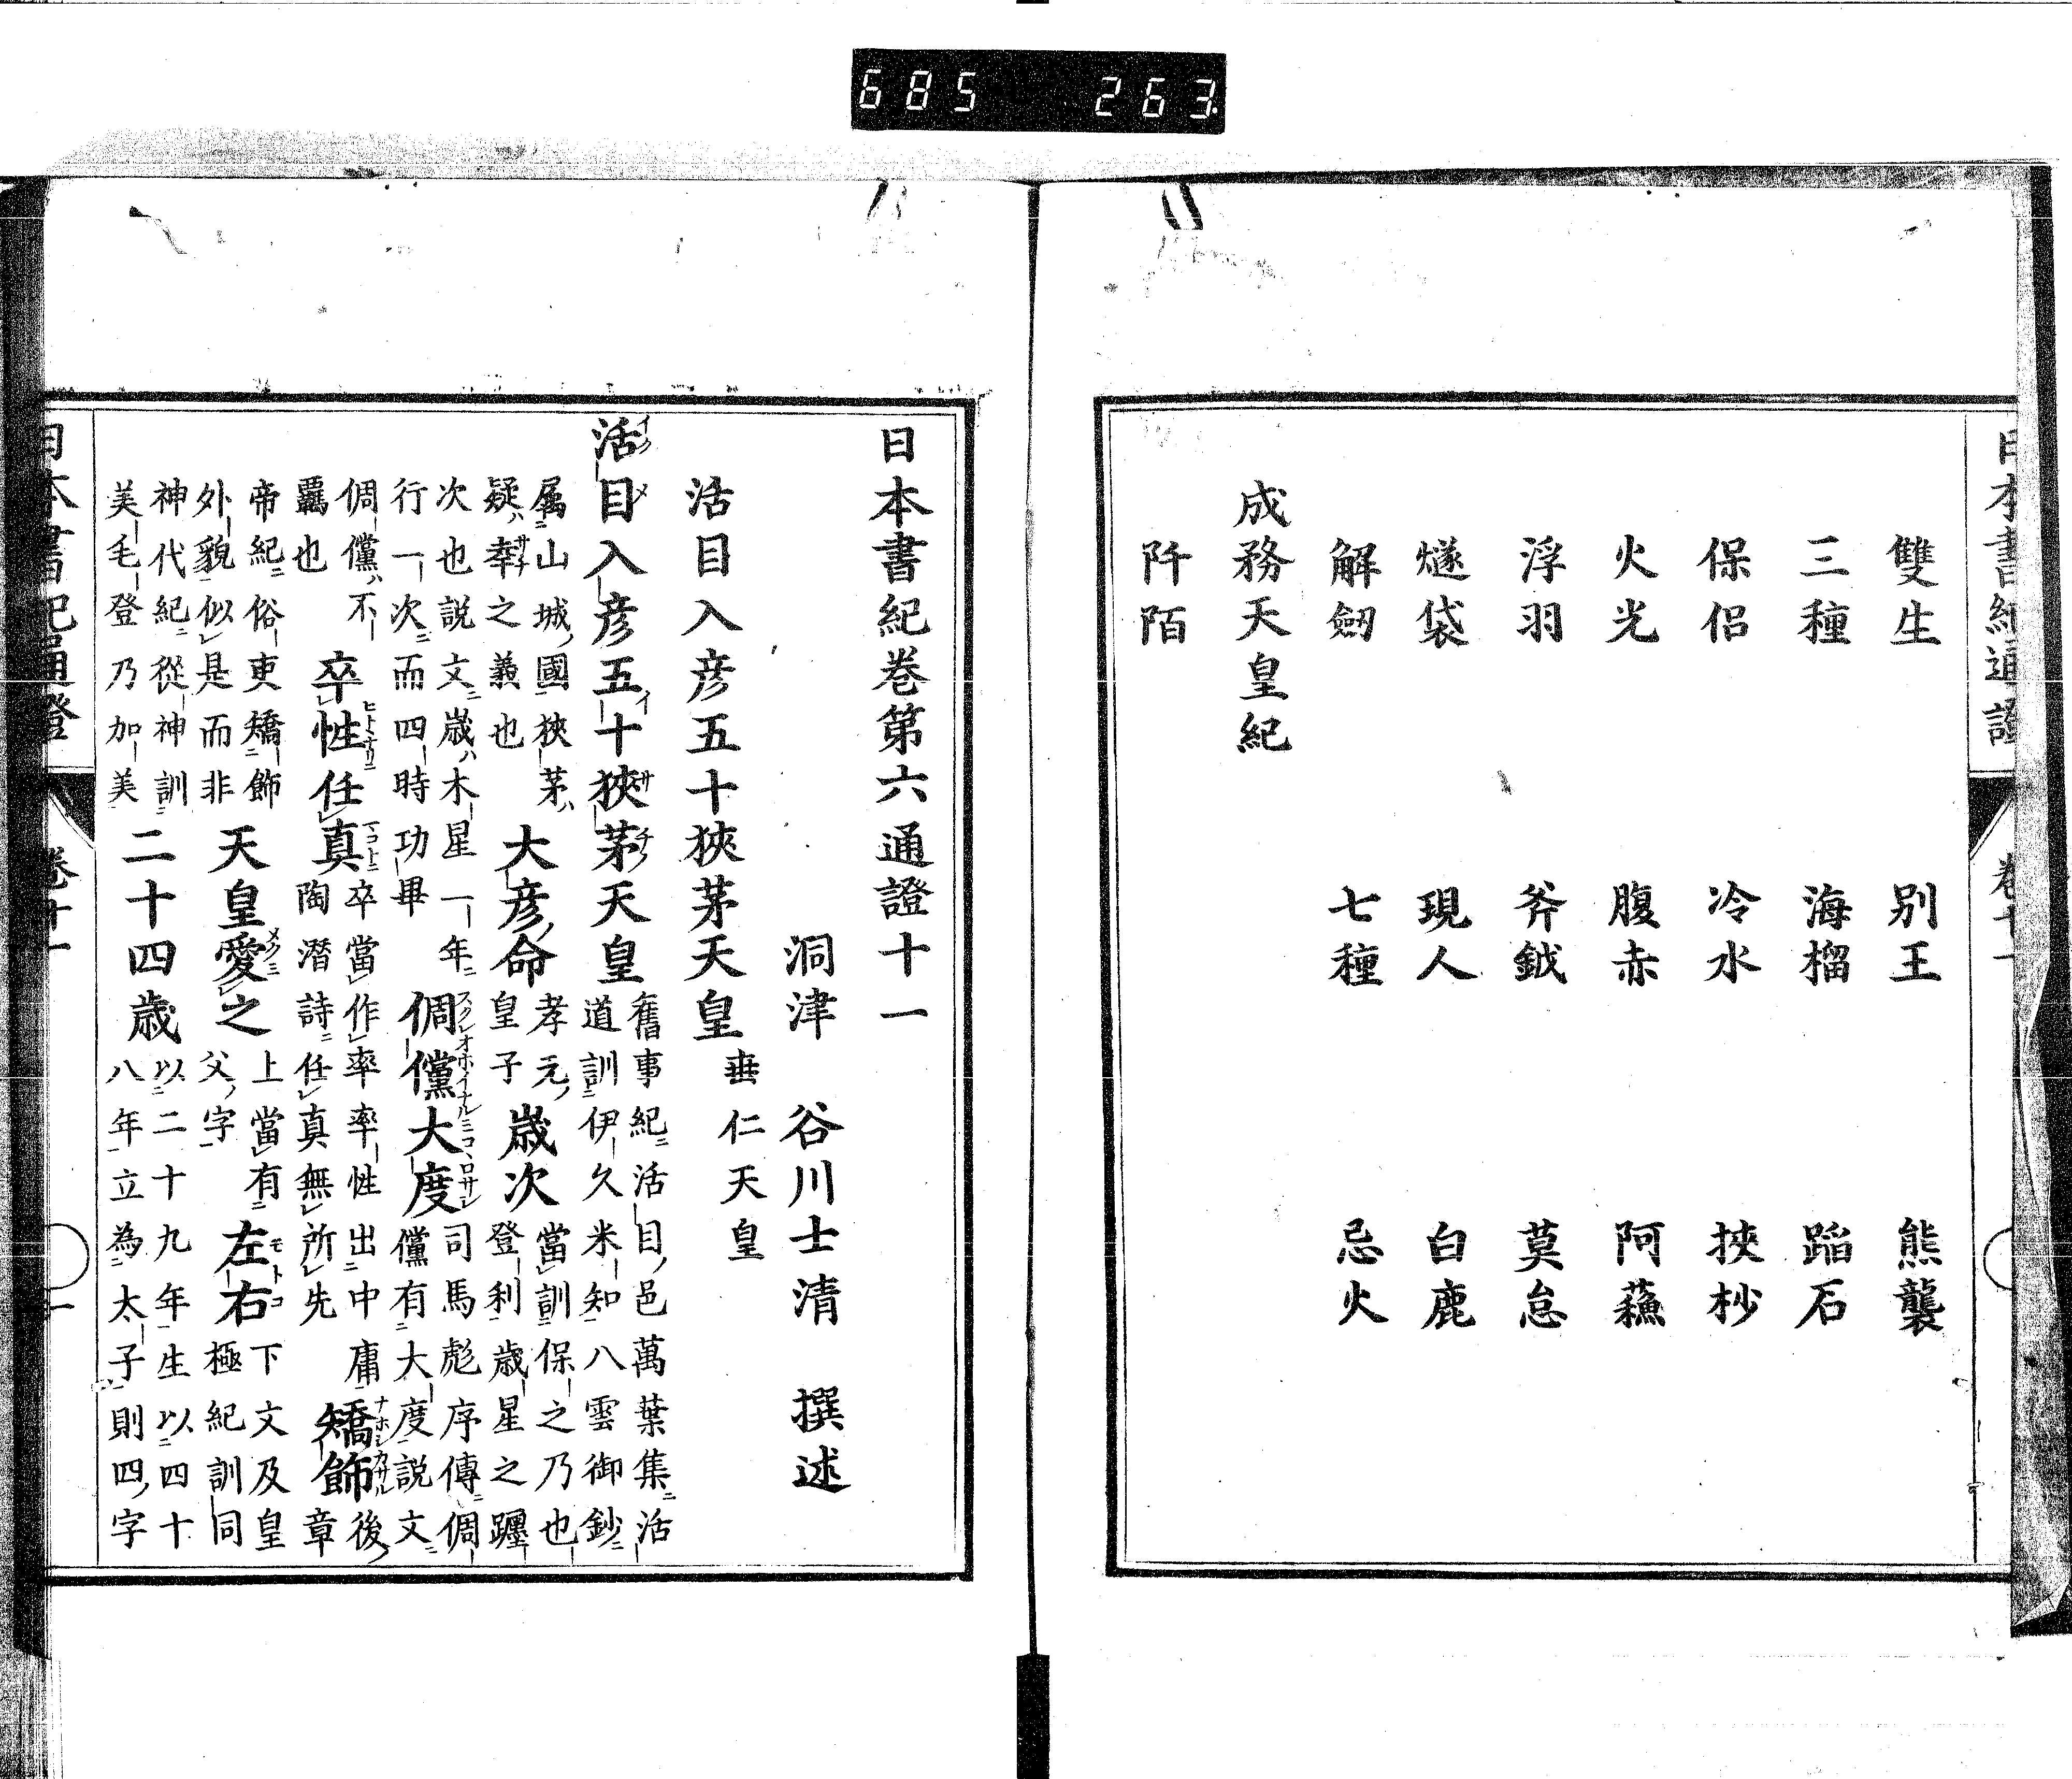 685 263
日本書紀通證 卷十一
雙生 別王 熊襲
三種 海榴 蹈石
保侶 冷水 挾杪
火光 腹赤 阿蘓
浮羽 斧鉞 莫怠
燧袋 現人 白鹿
解劔 七種 忌火
成務天皇紀
阡陌
日本書紀卷第六通證十一
洞津 谷川士清 撰述
活目入彦五十狹茅天皇 垂仁天皇
活目入彦五十狹茅天皇
舊事紀ニ活目邑萬葉集ニ活
道訓ニ伊久米知八雲御鈔ニ
属ニ山城國狹茅ハ
疑ハ
之義也
大彦命
孝元皇子
歳次
當訓ニ保之乃也
登利歳星之躔
次也説文ニ歳ハ木星一年ニ
行一次ニ而四時功畢
倜儻大度
司馬彪序傳ニ倜
儻有ニ大度説文ニ
倜儻ハ不
羈也
卒性任真
卒當作率率性出ニ中庸
陶潛詩ニ任真無所先
矯飾
後
章
帝紀ニ俗吏矯ニ飾
外貌似是而非
天皇愛之
上當有ニ
父字
左右
下文及皇
極紀訓同
神代紀ニ從神訓ニ
美毛登乃加美
二十四歳
以ニ二十九年生以ニ四十
八年立為ニ太子則四字
日本書紀通證 卷十一 一